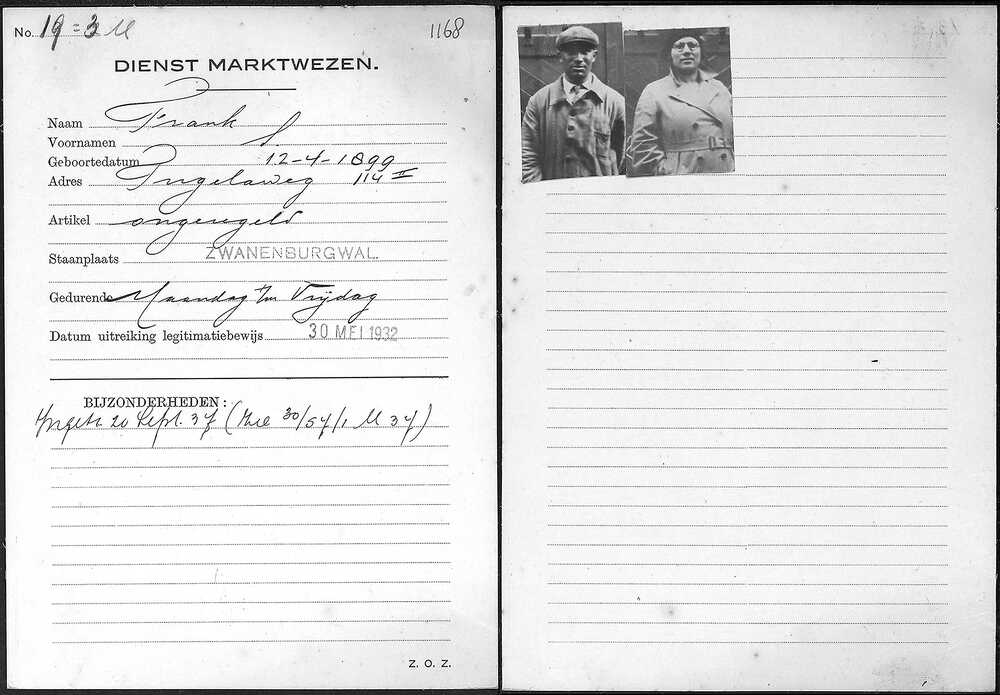 No. 19=3 M 1168
DIENST MARKTWEZEN.
Naam Frank
Voornamen S.
Geboortedatum 12-4-1899
Adres Ingelaweg 114 II
Artikel ongeregeld
Staanplaats ZWANENBURGWAL.
Gedurende Maandag t/m Vrijdag
Datum uitreiking legitimatiebewijs 30 MEI 1932
BIJZONDERHEDEN:
Inget. 20 Sept. 37 (Zie 30/57/1 M 37)
Z. O. Z.